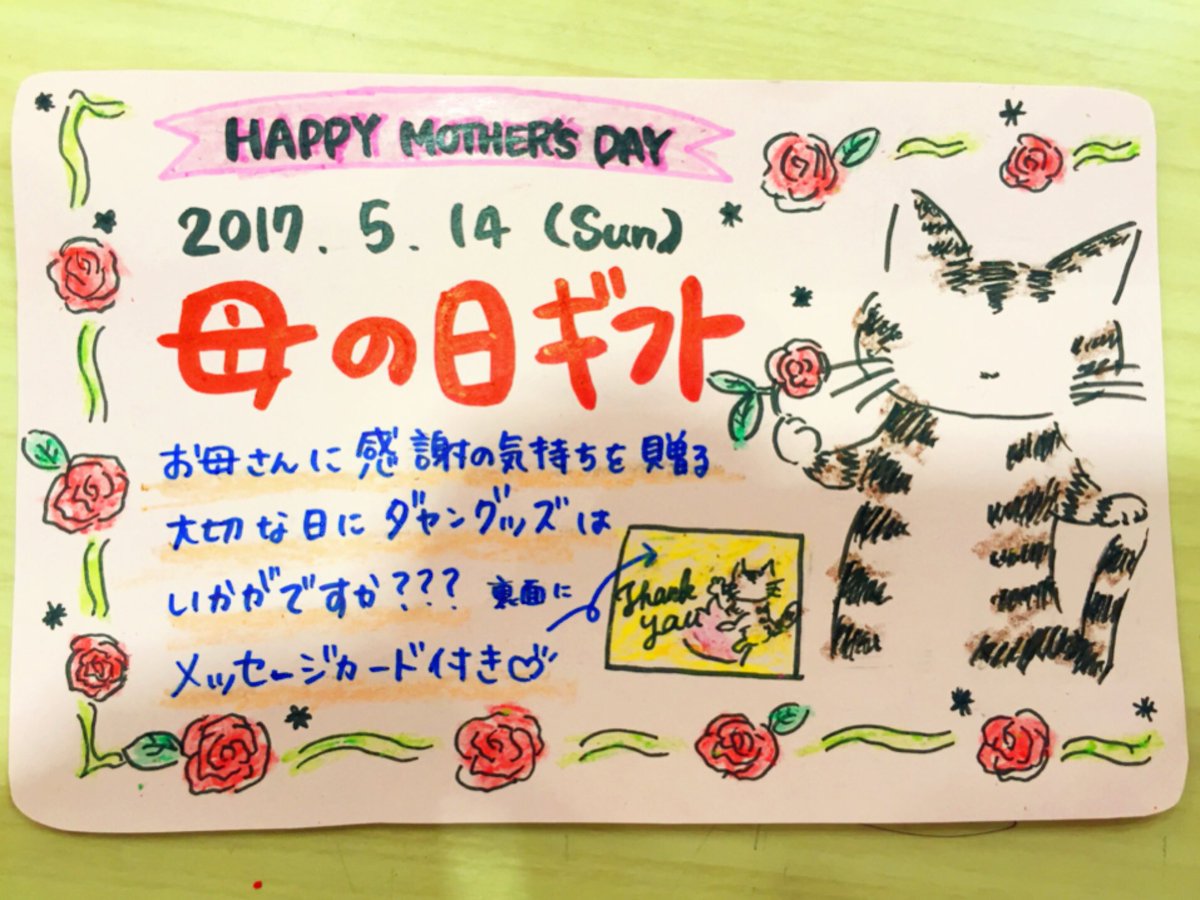 HAPPY MOTHER'S DAY
2017. 5. 14 (Sun)
母の日ギフト
お母さんに感謝の気持ちを贈る
大切な日にダヤングッズは
いかがですか???
裏面に
メッセージカード付き♡
Thank
you